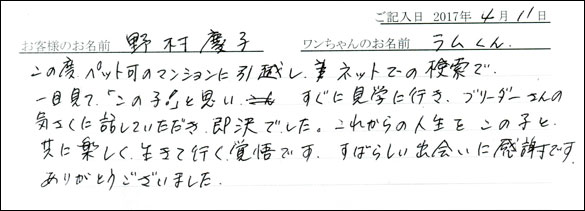 ご記入日 2017年4月11日
お客様のお名前 野村慶子 ワンちゃんのお名前 ラムくん.
この度、ペット可のマンションに引越し、ネットでの検索で、
一目見て、「この子!」と思い、すぐに見学に行き、ブリーダーさんの
気さくに話していただき、即決でした。これからの人生をこの子と、
共に楽しく、生きて行く覚悟です。すばらしい出会いに感謝です。
ありがとうございました.